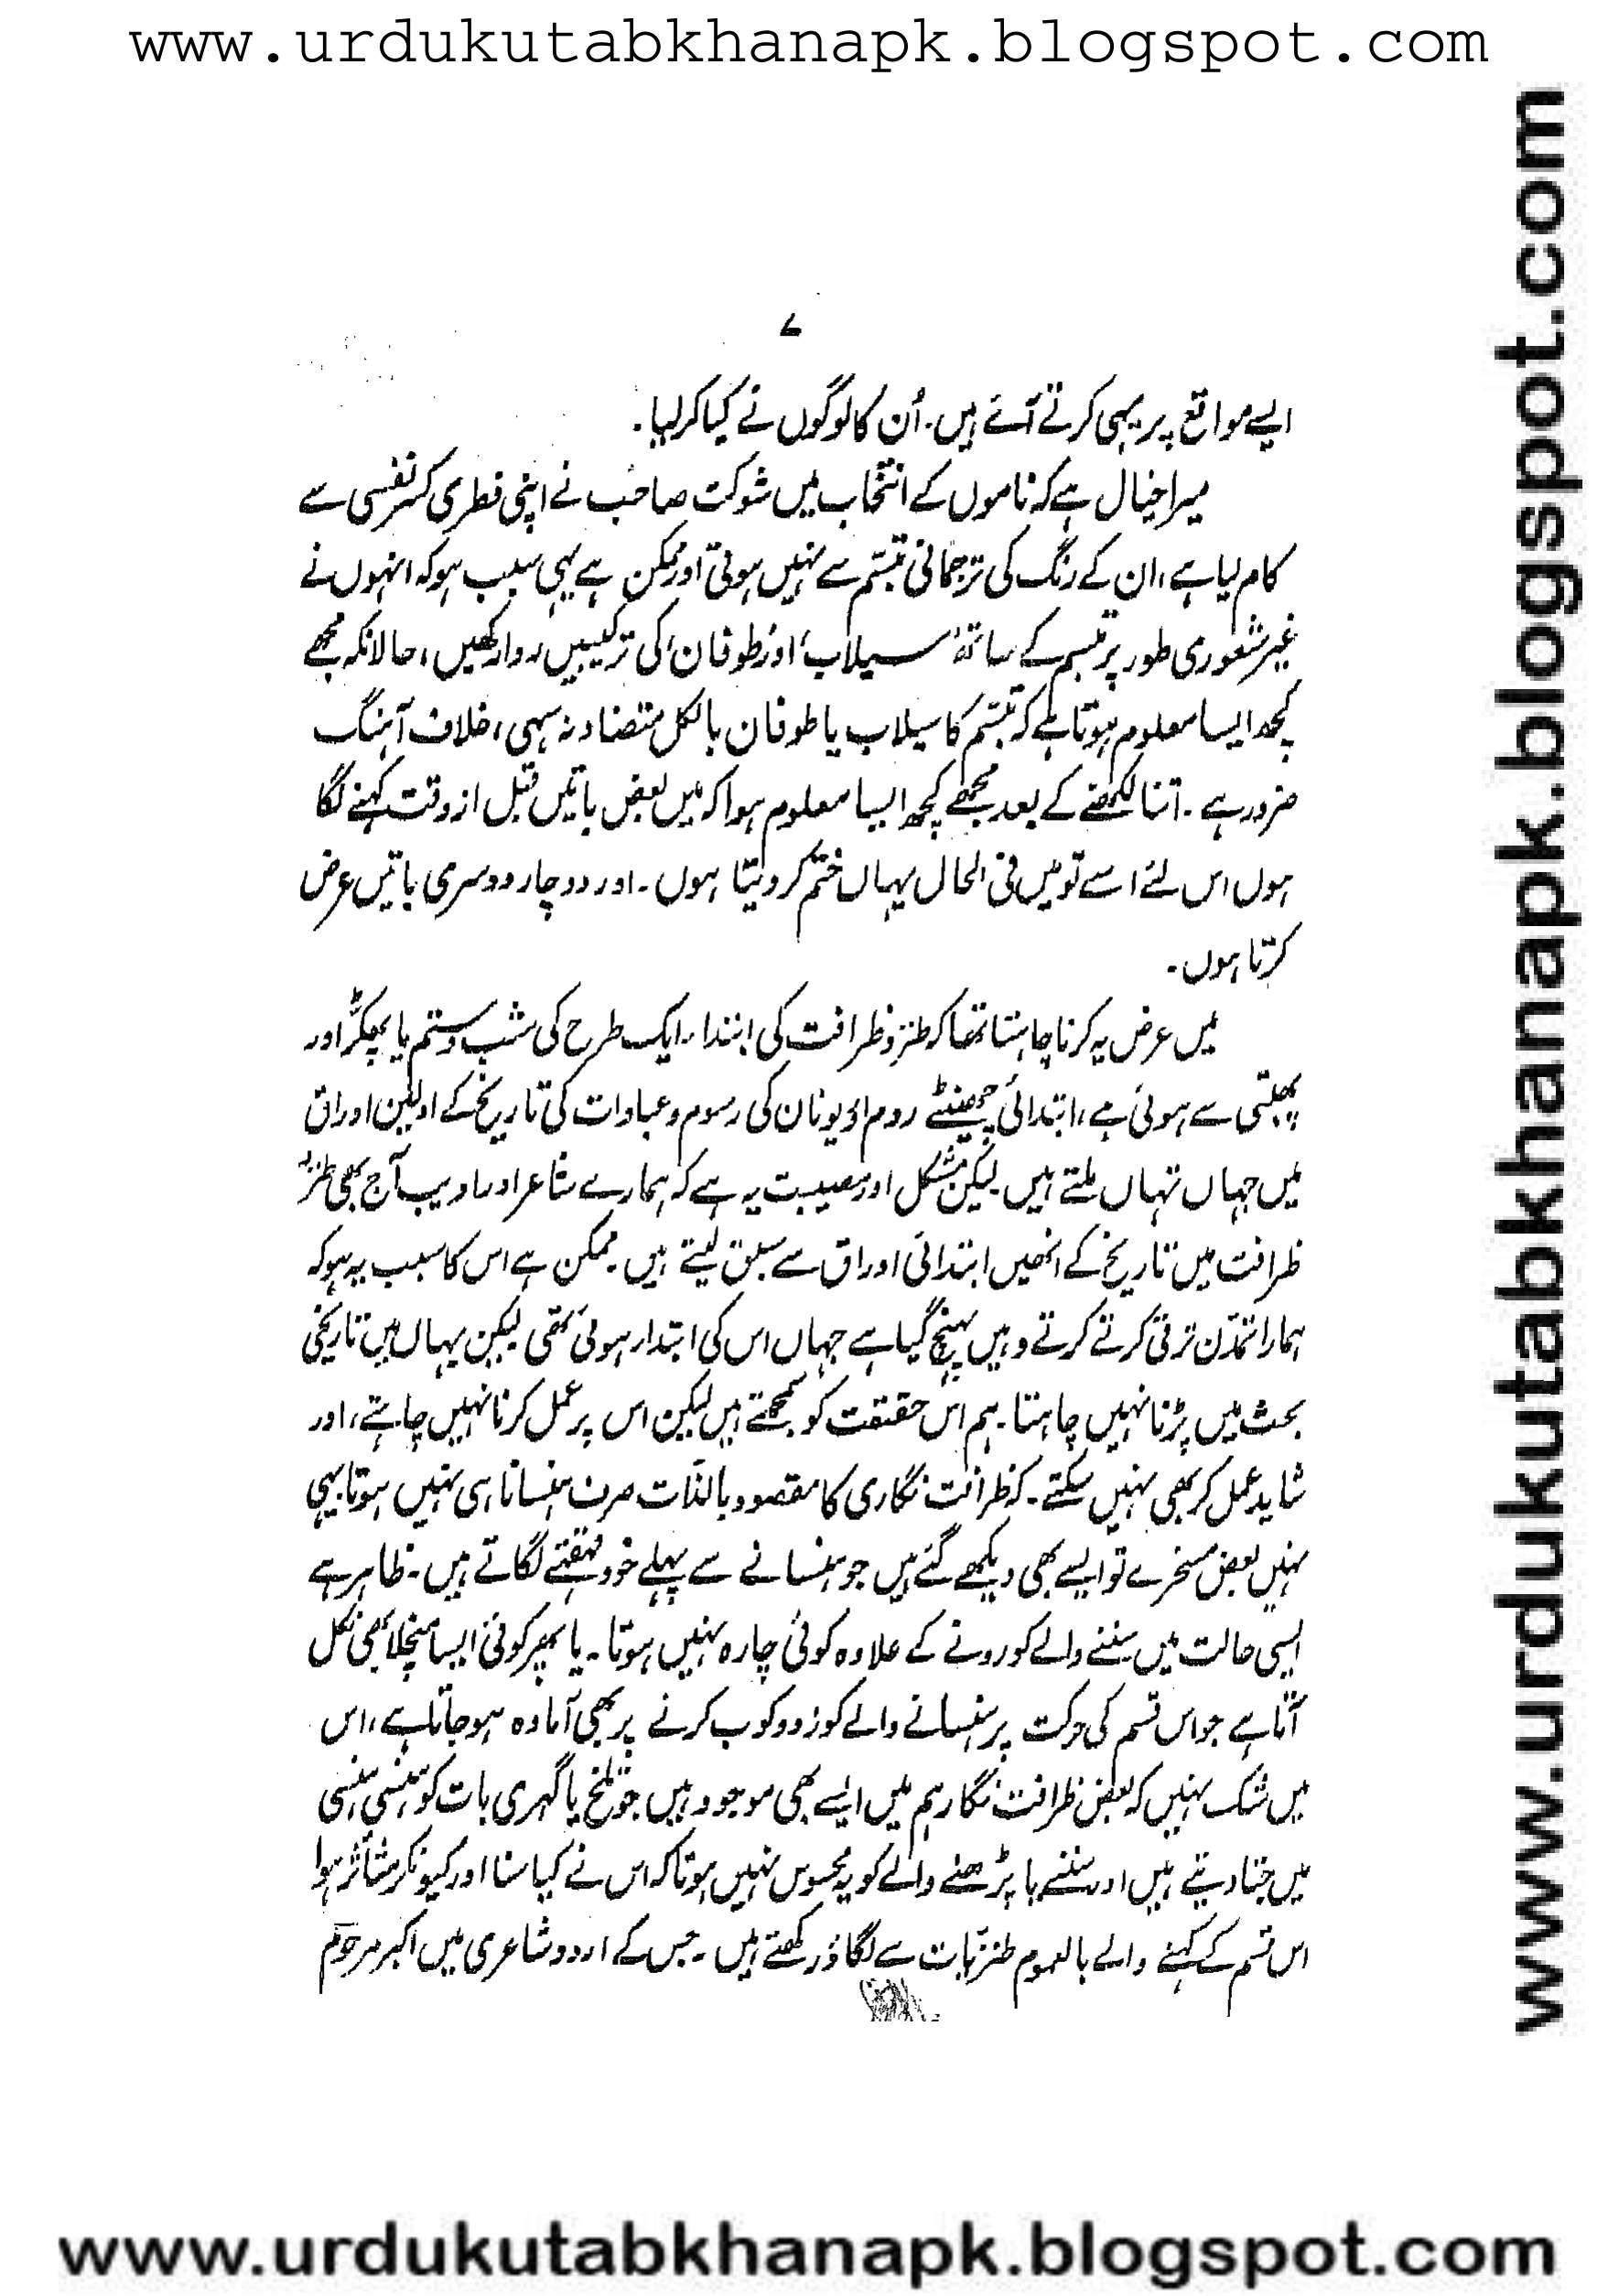 www.urdukutabkhanapk.blogspot.com
۷
ایسے مواقع پر یہی کرتے آئے ہیں۔ اُن کا لوگوں نے کیا کر لیا۔
میرا خیال ہے کہ ناموں کے انتخاب میں شوکت صاحب نے اپنی فطری کسر نفسی سے
کام لیا ہے، ان کے رنگ کی ترجمانی تبسّم سے نہیں ہوتی اور ممکن ہے یہی سبب ہو کہ انہوں نے
غیر شعوری طور پر تبسم کے ساتھ "سیلاب" اور "طوفان" کی ترکیبیں روا رکھیں، حالانکہ مجھے
کچھ ایسا معلوم ہوتا ہے کہ تبسّم کا سیلاب یا طوفان بالکل متضاد نہ سہی، خلاف آہنگ
ضرور ہے۔ اتنا لکھنے کے بعد مجھے کچھ ایسا معلوم ہوا کہ میں بعض باتیں قبل از وقت کہنے لگا
ہوں اس لئے اسے تو میں فی الحال یہاں ختم کر دیتا ہوں۔ اور دو چار دوسری باتیں عرض
کرتا ہوں۔
میں عرض یہ کرنا چاہتا تھا کہ طنز و ظرافت کی ابتداء ایک طرح کی سَب و ستم یا پھکڑ اور
پھبتی سے ہوئی ہے، ابتدائی چھینٹے روم او یونان کی رسوم و عبادات کی تاریخ کے اولین اوراق
میں جہاں تہاں ملتے ہیں۔ لیکن مشکل اور مصیبت یہ ہے کہ ہمارے شاعر اور ادیب آج بھی طنز و
ظرافت میں تاریخ کے انھیں ابتدائی اوراق سے سبق لیتے ہیں۔ ممکن ہے اس کا سبب یہ ہو کہ
ہمارا تمدّن ترقی کرتے کرتے وہیں پہنچ گیا ہے جہاں اس کی ابتداء ہوئی تھی لیکن یہاں میں تاریخی
بحث میں پڑنا نہیں چاہتا۔ ہم اس حقیقت کو سمجھتے ہیں لیکن اس پر عمل کرنا نہیں چاہتے، اور
شاید عمل کر بھی نہیں سکتے۔ کہ ظرافت نگاری کا مقصود بالذّات صرف ہنسانا ہی نہیں ہوتا یہی
نہیں بعض مسخرے تو ایسے بھی دیکھے گئے ہیں جو ہنسانے سے پہلے خود قہقہے لگاتے ہیں۔ ظاہر ہے
ایسی حالت میں سننے والے کو رونے کے علاوہ کوئی چارہ نہیں ہوتا۔ یا پھر کوئی ایسا منچلا بھی نکل
آتا ہے جو اس قسم کی حرکت پر ہنسانے والے کو زد و کوب کرنے پر بھی آمادہ ہو جاتا ہے، اس
میں شک نہیں کہ بعض ظرافت نگار ہم میں ایسے بھی موجود ہیں جو تلخ یا گہری بات کو ہنسی ہنسی
میں جتا دیتے ہیں اور سننے یا پڑھنے والے کو یہ محسوس نہیں ہوتا کہ اس نے کیا سنا اور کیونکر متاثر ہوا
اس قسم کے کہنے والے بالعموم طنزیّات سے لگاؤ رکھتے ہیں۔ جس کے اردو شاعری میں اکبر مرحوم
www.urdukutabkhanapk.blogspot.com
www.urdukutabkhanapk.blogspot.com